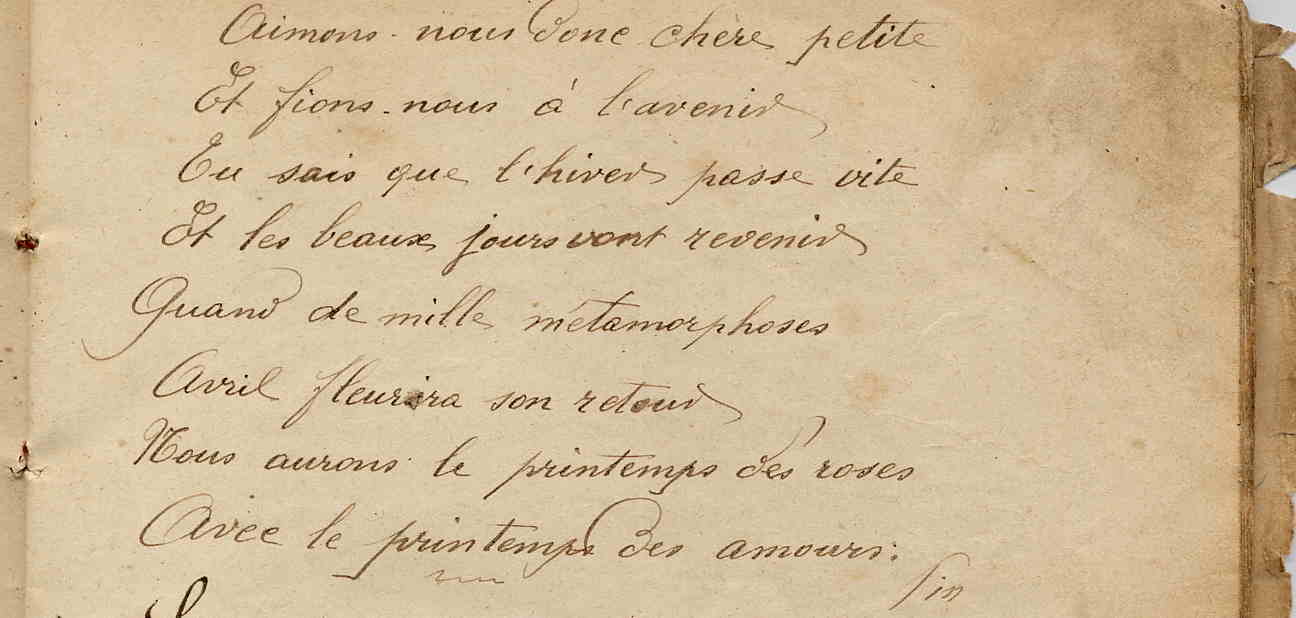 Aimons-nous donc chère petite
Et fions-nous à l'avenir
Tu sais que l'hiver passe vite
Et les beaux jours vont revenir
Quand de mille métamorphoses
Avril fleurira son retour
Nous aurons le printemps des roses
Avec le printemps des amours.
Fin